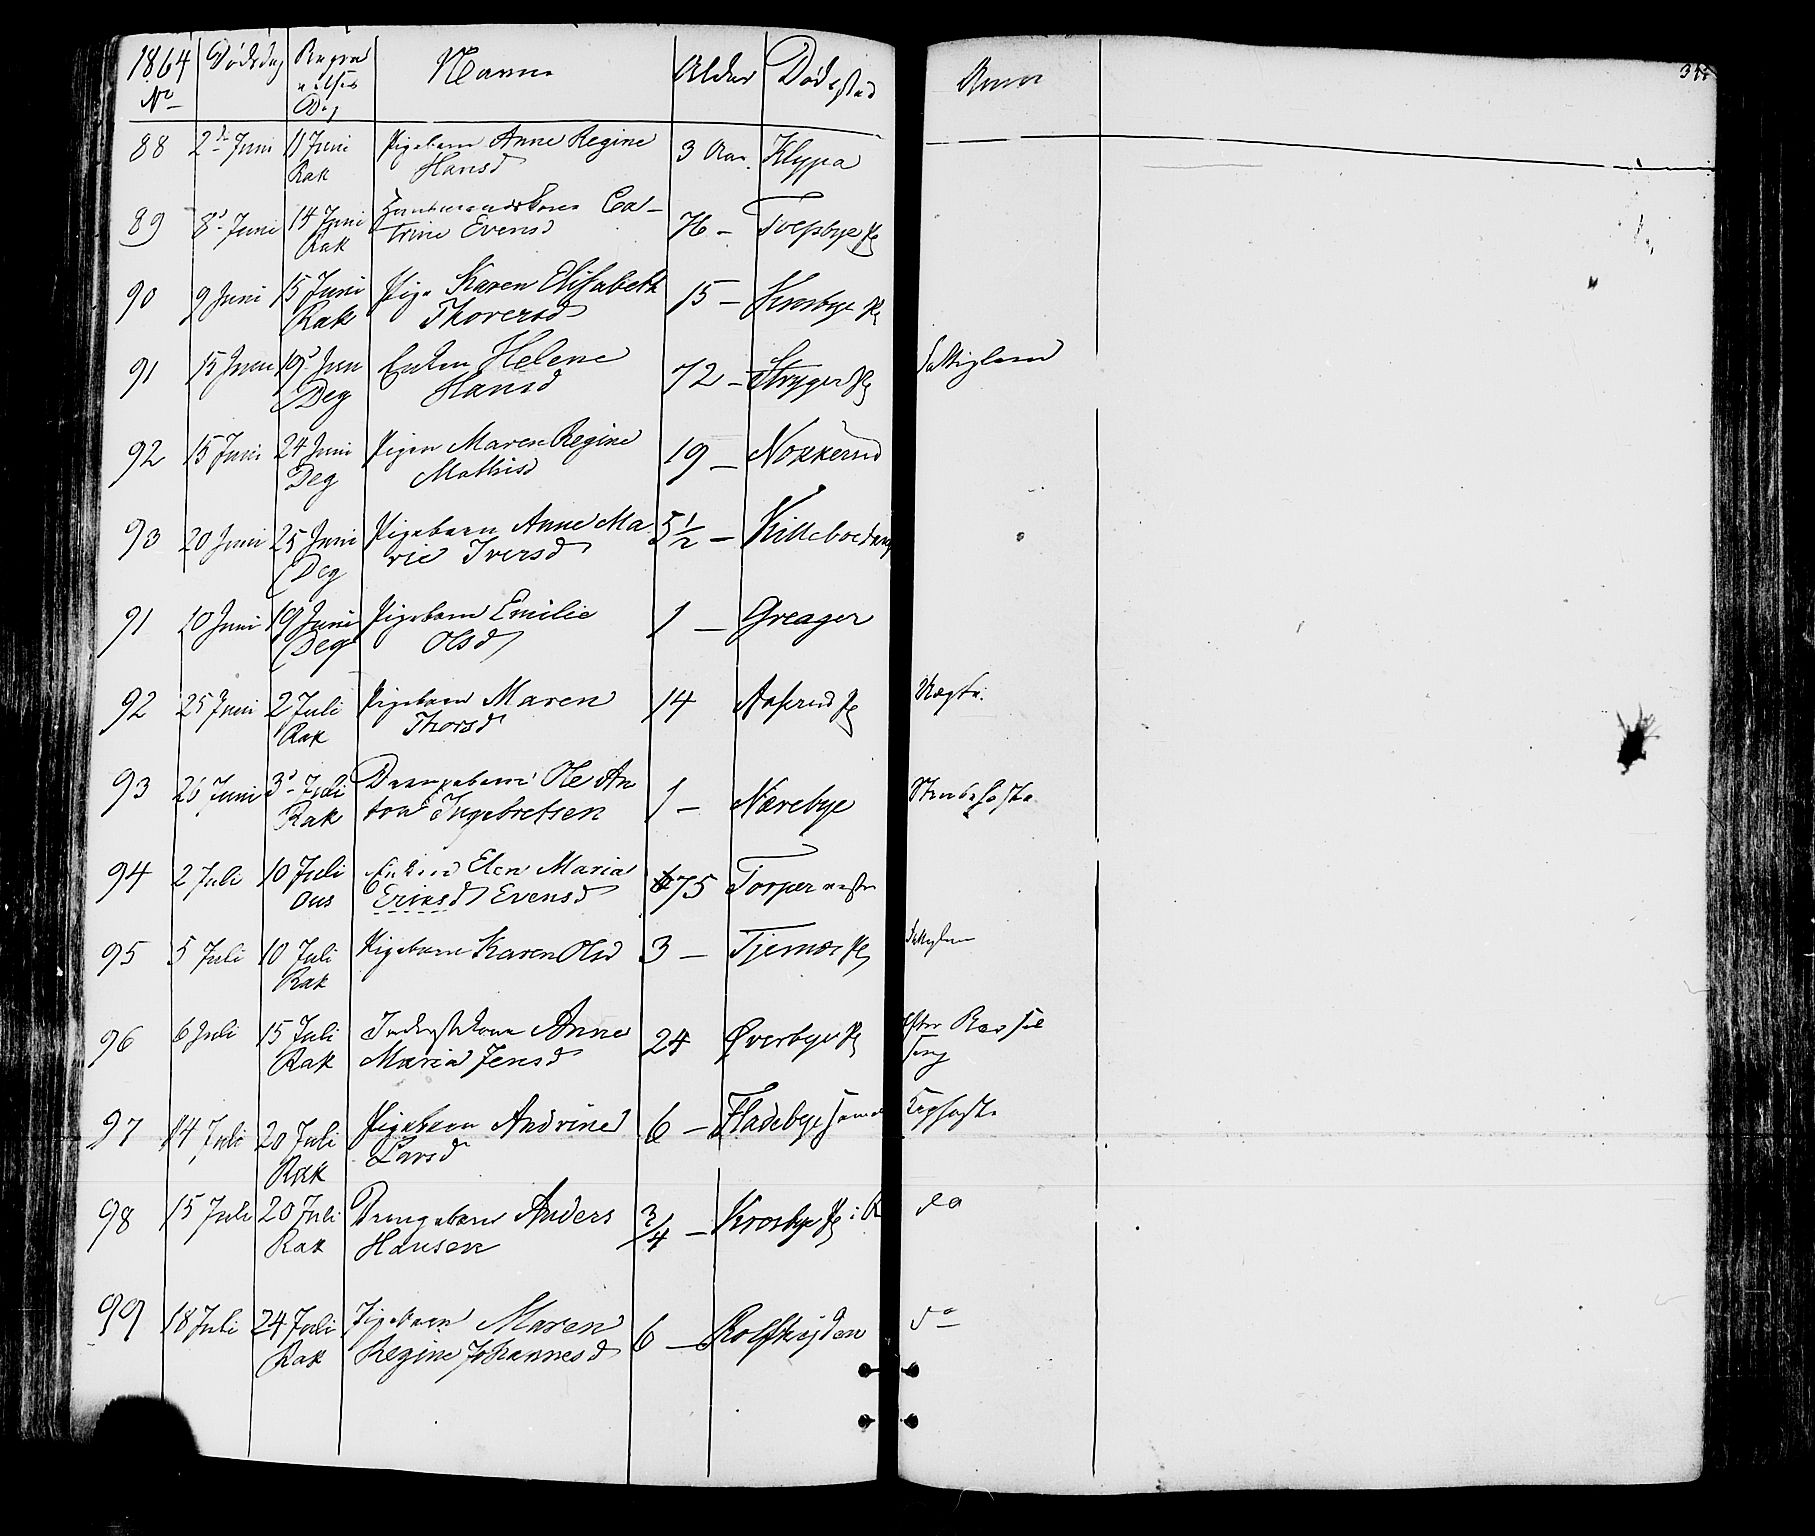 1864 Dødsdag Begravelses Navn Alder Dødssted Anm
No Dag
88 2d Juni 11 Juni Pigebarn Anne Regine 3 Aar Klypa
Rak Hansd
89 8d Juni 14 Juni Huusmandskone Ca- 76 -
Rak trine Evensd
90 9 Juni 15 Juni Pige Karen Elisabeth 15 - Krosbye
Rak Thoversd
91 15 Juni 19d Juni Enken Helene 72 - Stryger
Deg Hansd
92 15 Juni 24 Juni Pigen Maren Regine 19 - Nokkerud
Deg Mathisd
93 20 Juni 25 Juni Pigebarn Anne Ma 5 1/2 -
Deg rie Iversd
91 10 Juni 19 Juni Pigebarn Emilie 1 - Greager
Deg Olsd
92 25 Juni 2 Juli Pigebarn Maren 14
Rak Thorsd
93 26 Juni 3d Juli Drengebarn Ole An 1 - Nærebye
Rak ton Ingebretsen
94 2 Juli 10 Juli Enken Elen Maria 75 Torper
Ous Eriksd Evensd
95 5 Juli 10 Juli Pigebarn Karen Olsd 3 -
Rak
96 6 Juli 15 Juli Inderstkone Anne 24 Øverbye efter Barsel
Rak Maria Jensd seng
97 14 Juli 20 Juli Pigebarn Andrine 6 - Fladebye
Rak Larsd
98 15 Juli 20 Juli Drengebarn Anders 3/4 - Krosbye do
Rak Hansen
99 18 Juli 24 Juli Pigebarn Maren 6 - do
Rak Regine Johannesd